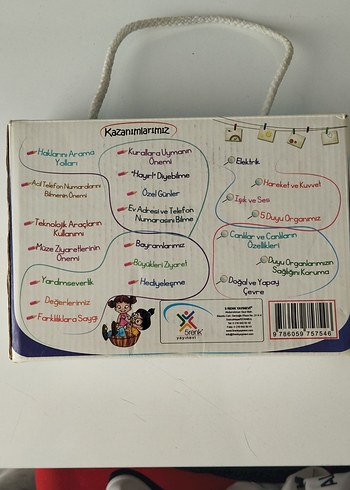 Kazanımlarımız
Haklarını Arama
Yolları
Acil Telefon Numaralarını
Bilmenin Önemi
Teknolojik Araçların
Kullanımı
Müze Ziyaretlerinin
Önemi
Yardımseverlik
Değerlerimiz
Farklılıklara Saygı
Kurallara Uymanın
Önemi
"Hayır" Diyebilme
Özel Günler
Ev Adresi ve Telefon
Numarasını Bilme
Bayramlarımız
Büyükleri Ziyaret
Hediyeleşme
Elektrik
Hareket ve Kuvvet
Işık ve Ses
5 Duyu Organımız
Canlılar ve Canlıların
Özellikleri
Duyu Organlarımızın
Sağlığını Koruma
Doğal ve Yapay
Çevre
5renk
yayınevi
5 RENK YAYINEVİ
9 786059 757546